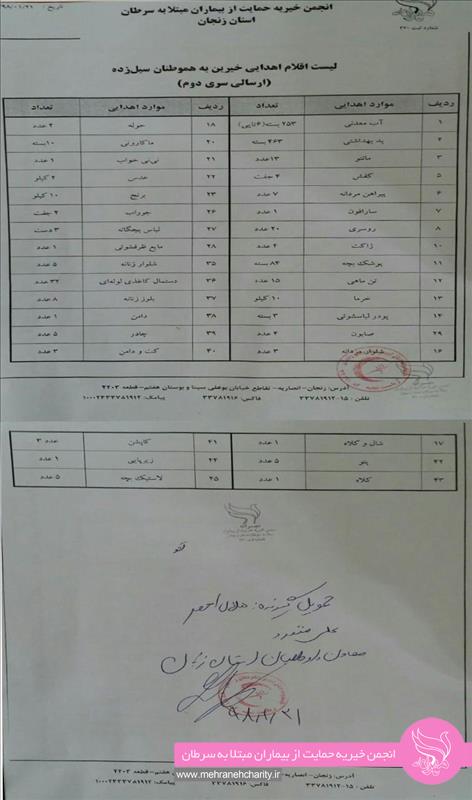 انجمن خیریه حمایت از بیماران مبتلا به سرطان
استان زنجان
تاریخ : ۹۸/۰۱/۲۱
شماره ثبت ۳۷۰
لیست اقلام اهدایی خیرین به هموطنان سیل‌زده
(ارسالی سری دوم)
ردیف موارد اهدایی تعداد ردیف موارد اهدایی تعداد
۱ آب معدنی ۲۵۳ بسته(۶تایی) ۱۸ حوله ۴ عدد
۲ پد بهداشتی ۴۶۳ بسته ۲۰ ماکارونی ۱۰بسته
۴ مانتو ۱۳عدد ۲۱ نی‌نی خواب ۱ عدد
۵ کفش ۴ جفت ۲۲ عدس ۲ کیلو
۶ پیراهن مردانه ۷ عدد ۲۳ برنج ۱۰ کیلو
۷ سارافون ۱ عدد ۲۶ جوراب ۲ جفت
۸ روسری ۲۰ عدد ۲۷ لباس بچگانه ۳ دست
۱۰ ژاکت ۴ عدد ۲۸ مایع ظرفشوئی ۱ عدد
۱۱ پوشک بچه ۸۴ بسته ۳۵ شلوار زنانه ۵ عدد
۱۲ تن ماهی ۱۵ عدد ۳۶ دستمال کاغذی لوله‌ای ۳۲ عدد
۱۳ خرما ۱۰ کیلو ۳۷ بلوز زنانه ۸ عدد
۱۴ پودر لباسشوئی ۳ بسته ۳۸ دامن ۱ عدد
۲۹ صابون ۲ عدد ۳۹ چادر ۵ عدد
۱۶ شلوار مردانه ۳ عدد ۴۰ کت و دامن ۲ عدد
آدرس: زنجان- انصاریه- تقاطع خیابان بوعلی سینا و بوستان هفتم-قطعه ۴۲۰۳
تلفن : ۱۵-۳۳۷۸۱۹۱۲ فاکس: ۳۳۷۸۱۹۱۶ پیامک: ۱۰۰۰۲۳۳۷۸۱۹۱۲
۱۷ شال و کلاه ۱ عدد ۴۱ کاپشن ۳ عدد
۴۲ پتو ۵ عدد ۲۴ زیرپایی ۱ عدد
۴۳ کلاه ۱ عدد ۲۵ لاستیک بچه ۵ عدد
تحویل گیرنده: هلال احمر
علی
معاون داوطلبان استان زنجان
۹۸/۱/۲۱
انجمن خیریه حمایت از بیماران مبتلا به سرطان
www.mehranehcharity.ir